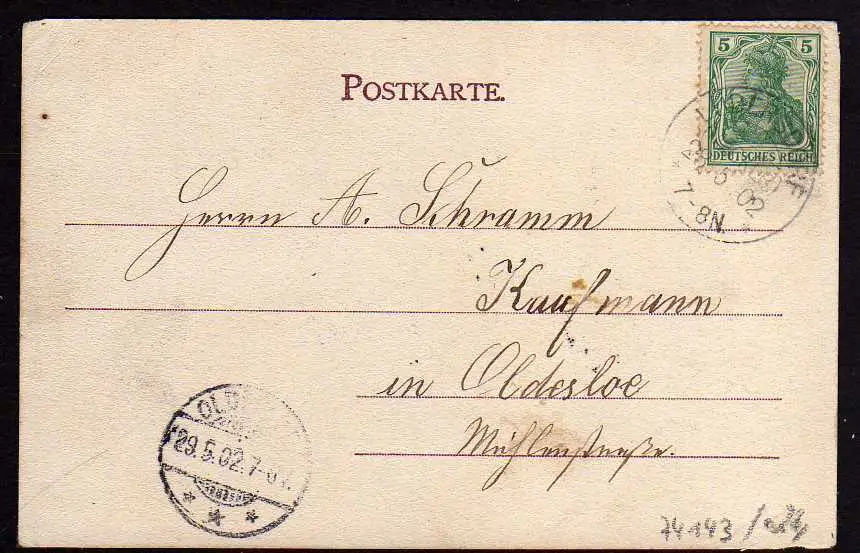 POSTKARTE.
5 5
DEUTSCHES REICH
5 02
7-8N.
Herrn A. Schramm
Kaufmann
in Oldesloe
Mühlenstraße.
OLD
29.5.02.7-8V.
74143